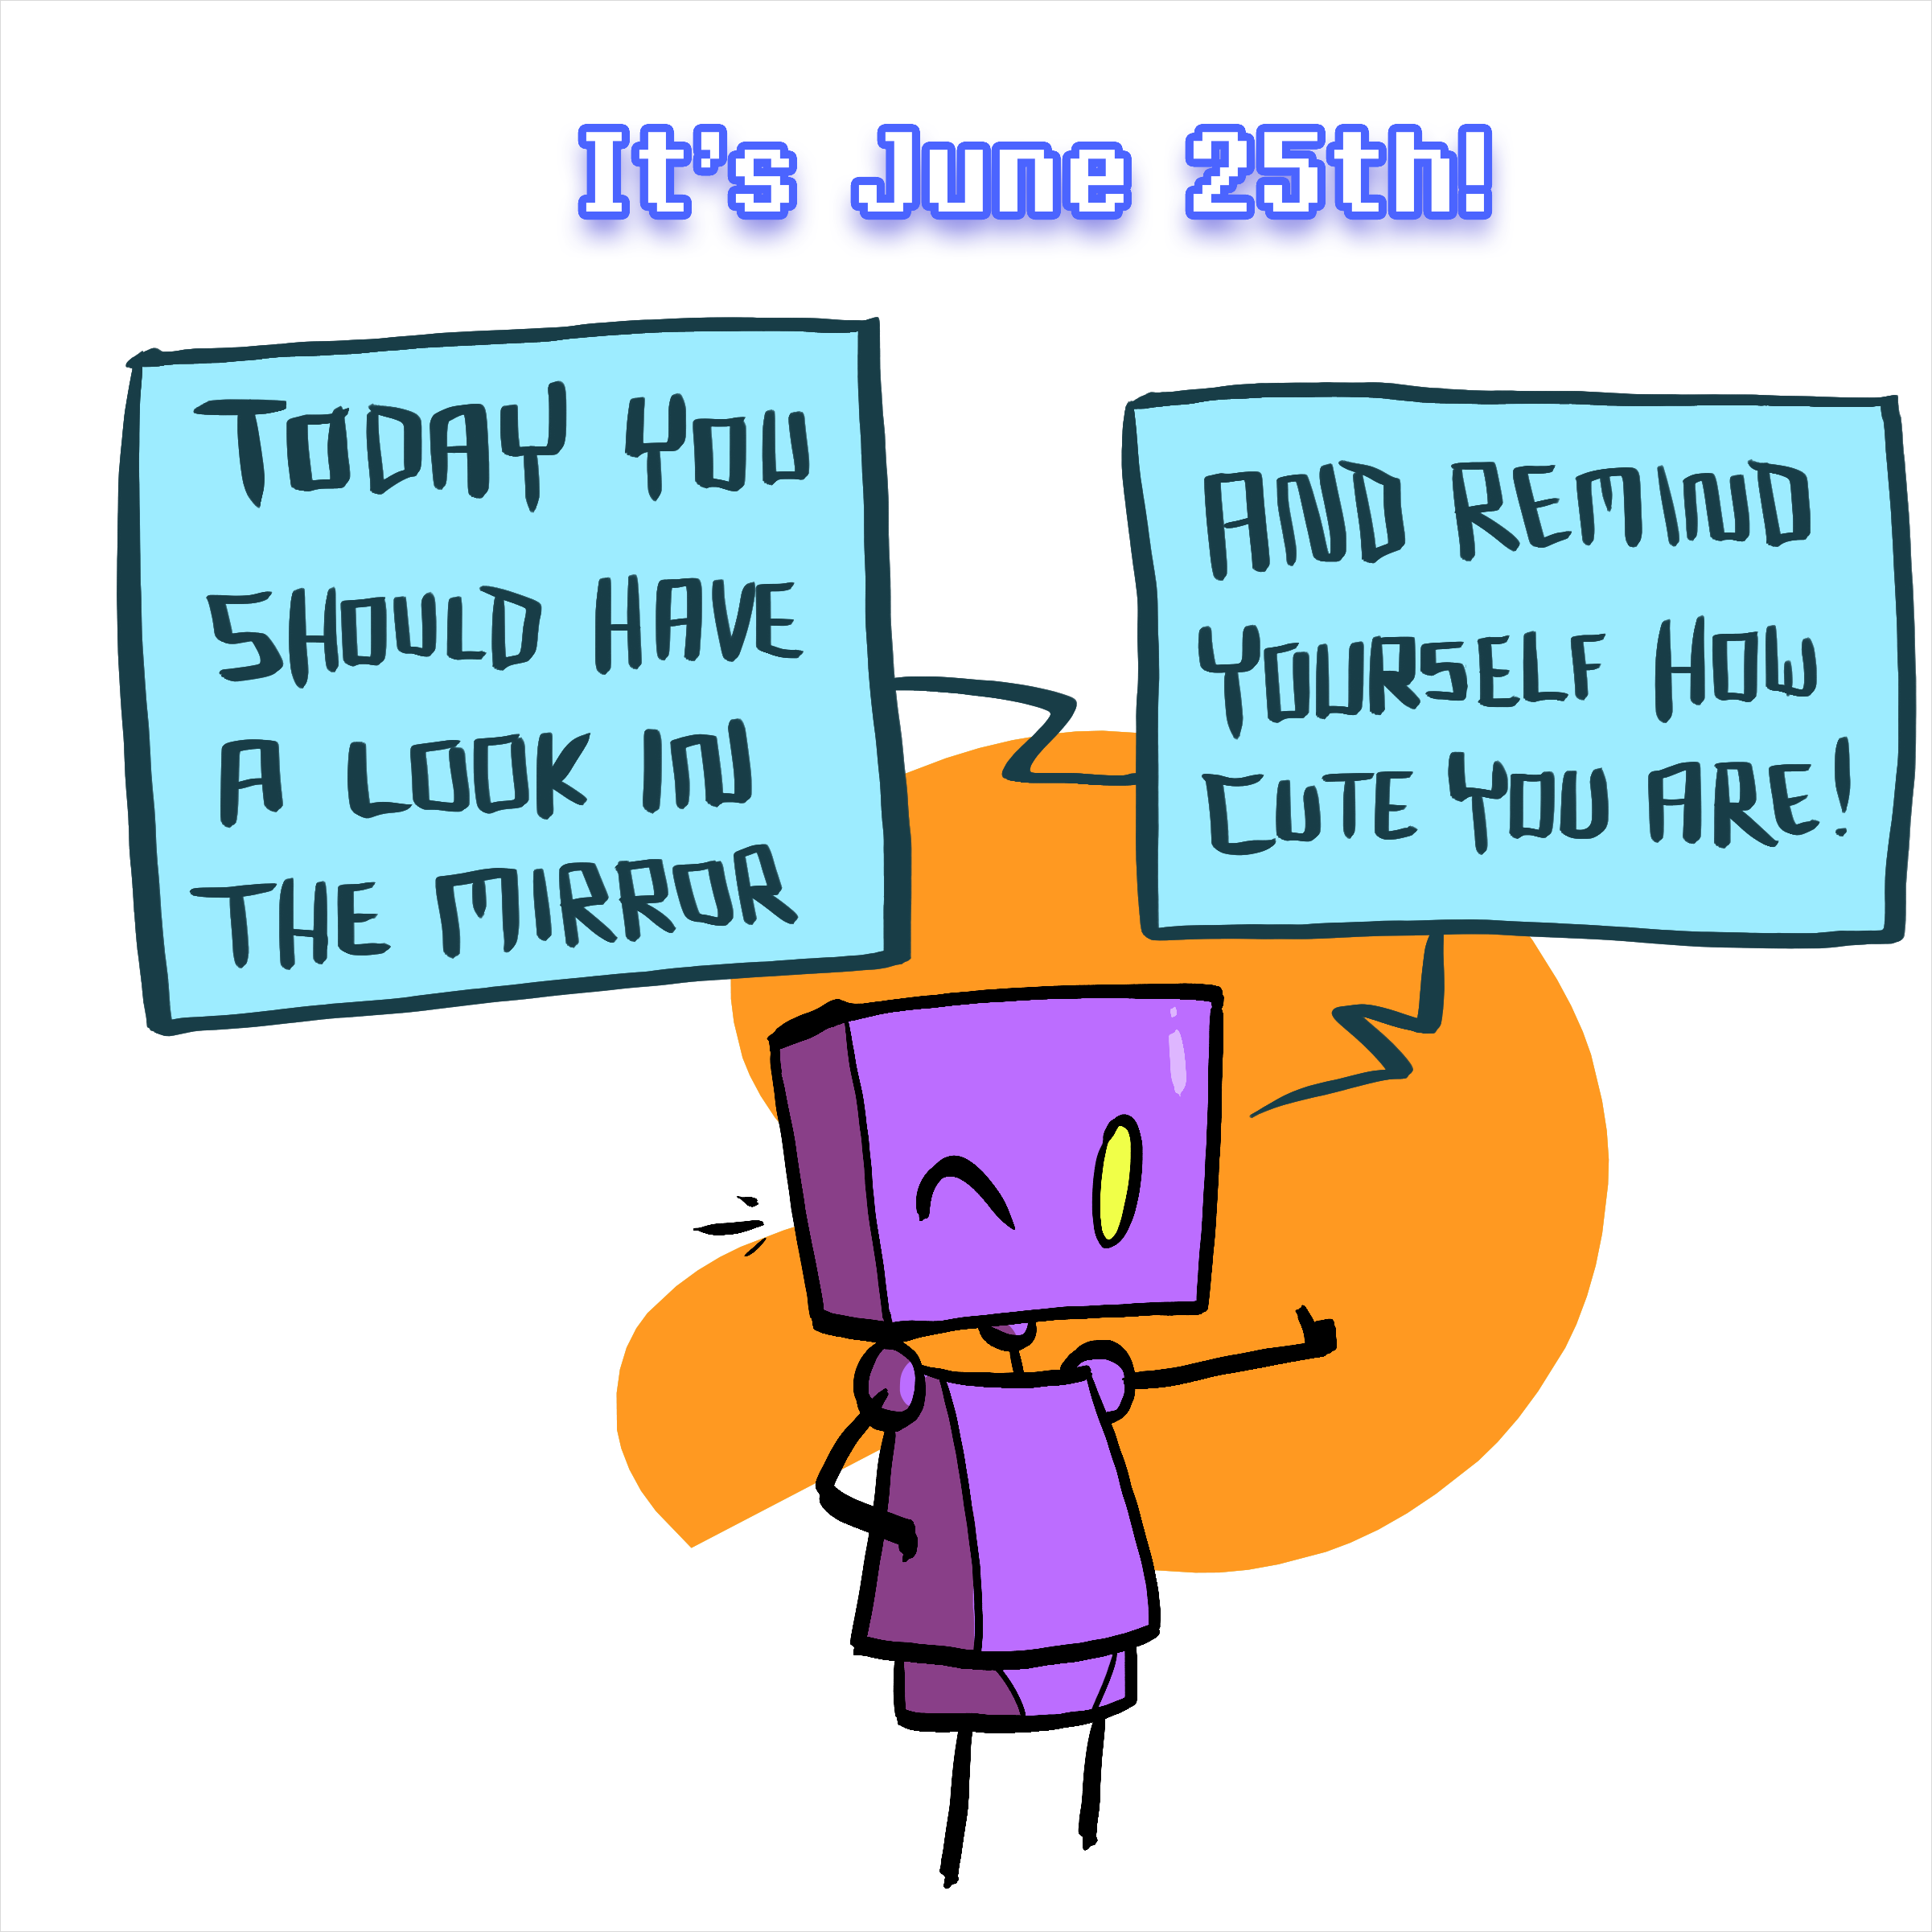 It's June 25th!
TODAY YOU
SHOULD HAVE
A LOOK IN
THE MIRROR
AND REMIND
YOURSELF HOW
CUTE YOU ARE!